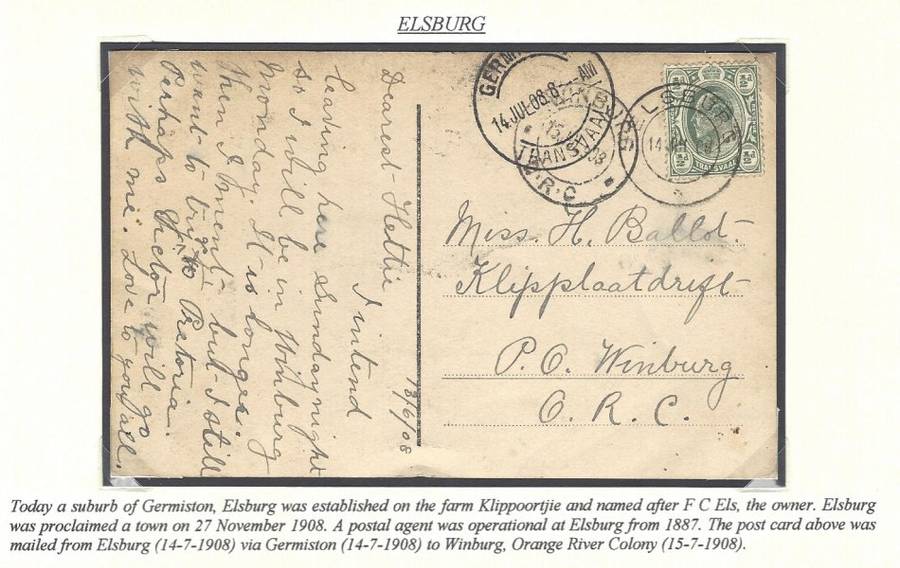 ELSBURG
13/6/08
Dearest Hettie
I intend
leaving here Sunday night
so I will be in Winburg
Monday. It is longer
then I ment but I still
want to try & go to Pretoria.
Perhaps Victor will go
with me. Love to you all.
GERMI
14 JUL 08 8 AM
TRANSVAAL
WINBURG
15
08
O.R.C
ELSBURG
14 JUL 08
½d ½d
½d TRANSVAAL ½d
Miss. H. Ballot.
Klipplaatdrift
P. O. Winburg
O. R. C.
Today a suburb of Germiston, Elsburg was established on the farm Klippoortjie and named after F C Els, the owner. Elsburg
was proclaimed a town on 27 November 1908. A postal agent was operational at Elsburg from 1887. The post card above was
mailed from Elsburg (14-7-1908) via Germiston (14-7-1908) to Winburg, Orange River Colony (15-7-1908).